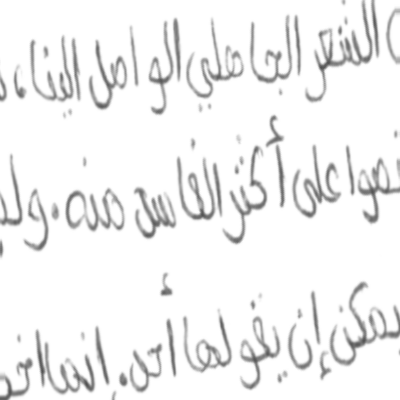 الشعر الجاهلي الواصل الينا،
على أكثر الناس منه. ولم
يمكن إن يقولها أحد. إنما